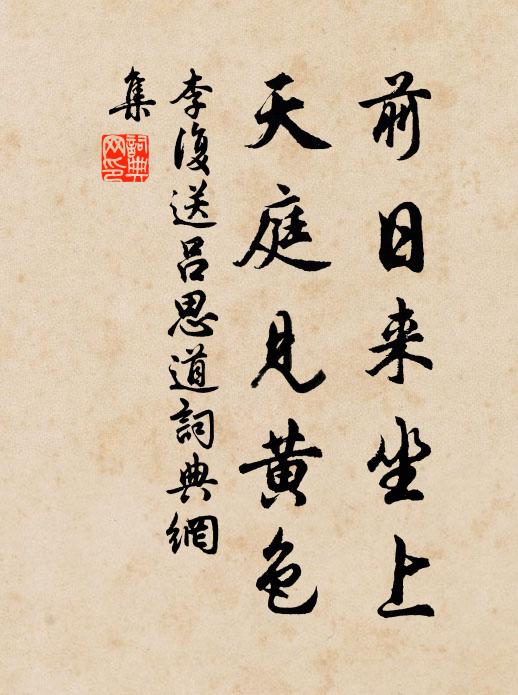 前日来坐上
天庭見黄色
李復送吕思道詞典網
集
詞典
网印